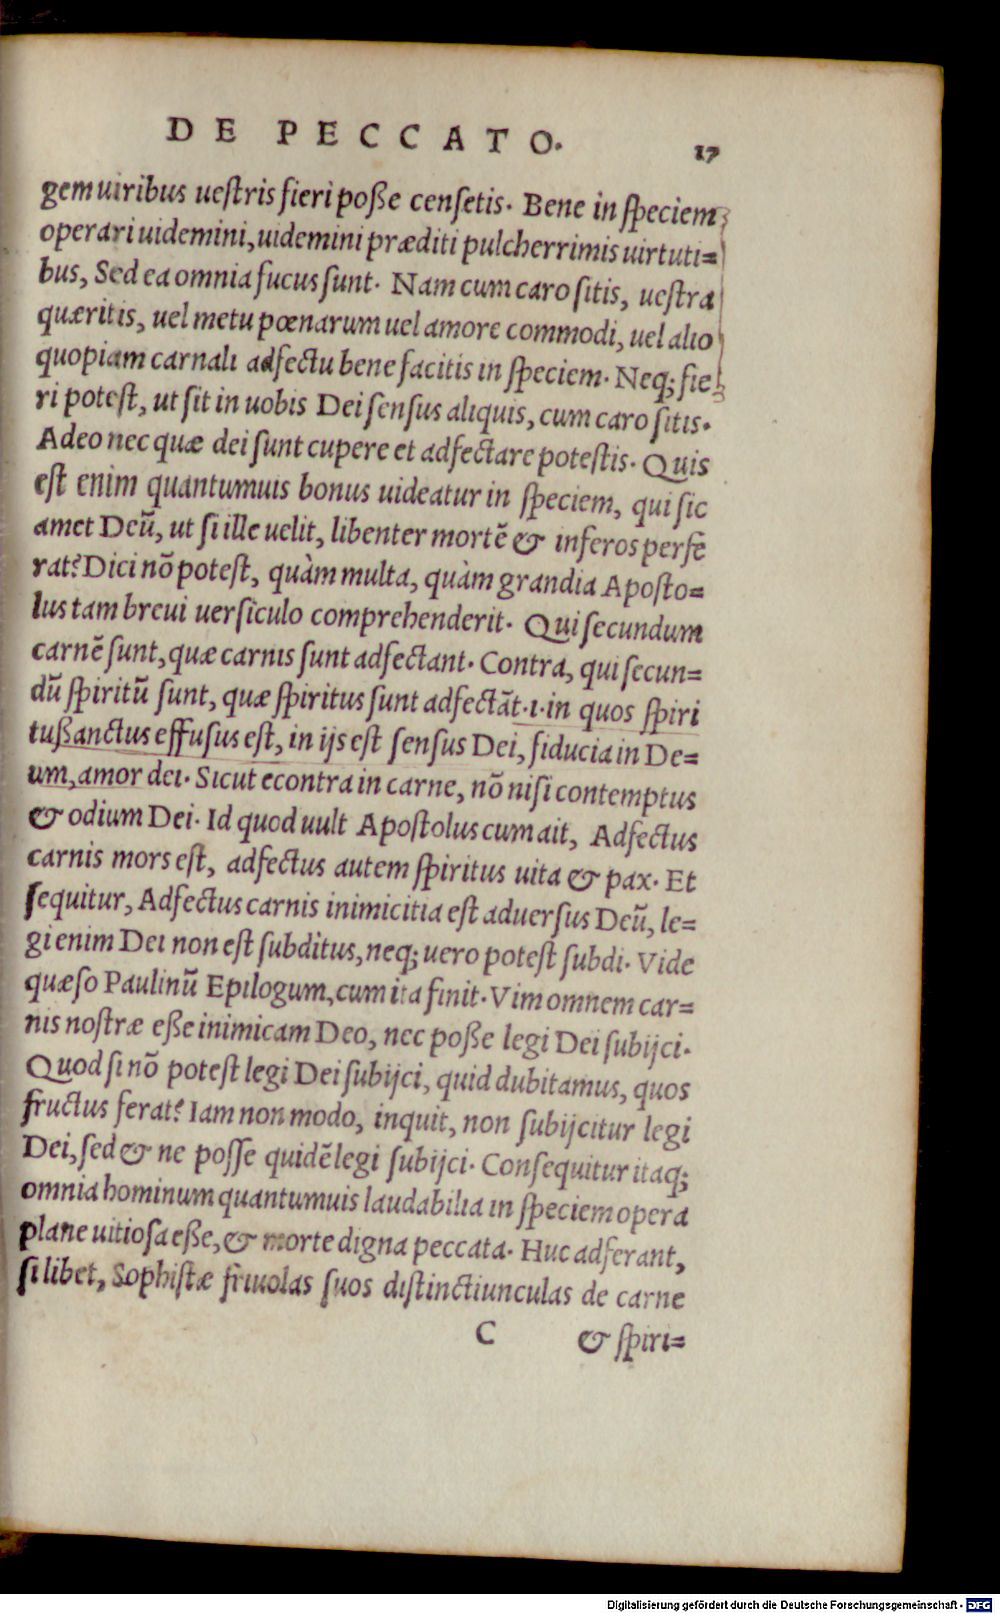 DE PECCATO.
17
gem uiribus uestris fieri poße censetis. Bene in speciem
operari uidemini, uidemini præditi pulcherrimis uirtuti=
bus, Sed ea omnia fucus sunt. Nam cum caro sitis, uestra
quæritis, uel metu pœnarum uel amore commodi, uel alio
quopiam carnali adfectu bene facitis in speciem. Neq; fie
ri potest, ut sit in uobis Dei sensus aliquis, cum caro sitis.
Adeo nec quæ dei sunt cupere et adfectare potestis. Quis
est enim quantumuis bonus uideatur in speciem, qui sic
amet Deũ, ut si ille uelit, libenter mortẽ & inferos perfe
rat? Dici nõ potest, quàm multa, quàm grandia Aposto=
lus tam breui uersiculo comprehenderit. Qui secundum
carnẽ sunt, quæ carnis sunt adfectant. Contra, qui secun=
dũ spiritũ sunt, quæ spiritus sunt adfectãt .i. in quos spiri
tußanctus effusus est, in ijs est sensus Dei, fiducia in De=
um, amor dei. Sicut econtra in carne, nõ nisi contemptus
& odium Dei. Id quod uult Apostolus cum ait, Adfectus
carnis mors est, adfectus autem spiritus uita & pax. Et
sequitur, Adfectus carnis inimicitia est aduersus Deũ, le=
gi enim Dei non est subditus, neq; uero potest subdi. Vide
quæso Paulinũ Epilogum, cum ita finit. Vim omnem car=
nis nostræ eße inimicam Deo, nec poße legi Dei subijci.
Quod si nõ potest legi Dei subijci, quid dubitamus, quos
fructus ferat? Iam non modo, inquit, non subijcitur legi
Dei, sed & ne posse quidẽ legi subijci. Consequitur itaq;
omnia hominum quantumuis laudabilia in speciem opera
plane uitiosa eße, & morte digna peccata. Huc adferant,
si libet, Sophistæ friuolas suos distinctiunculas de carne
C & spiri=
Digitalisierung gefördert durch die Deutsche Forschungsgemeinschaft - DFG